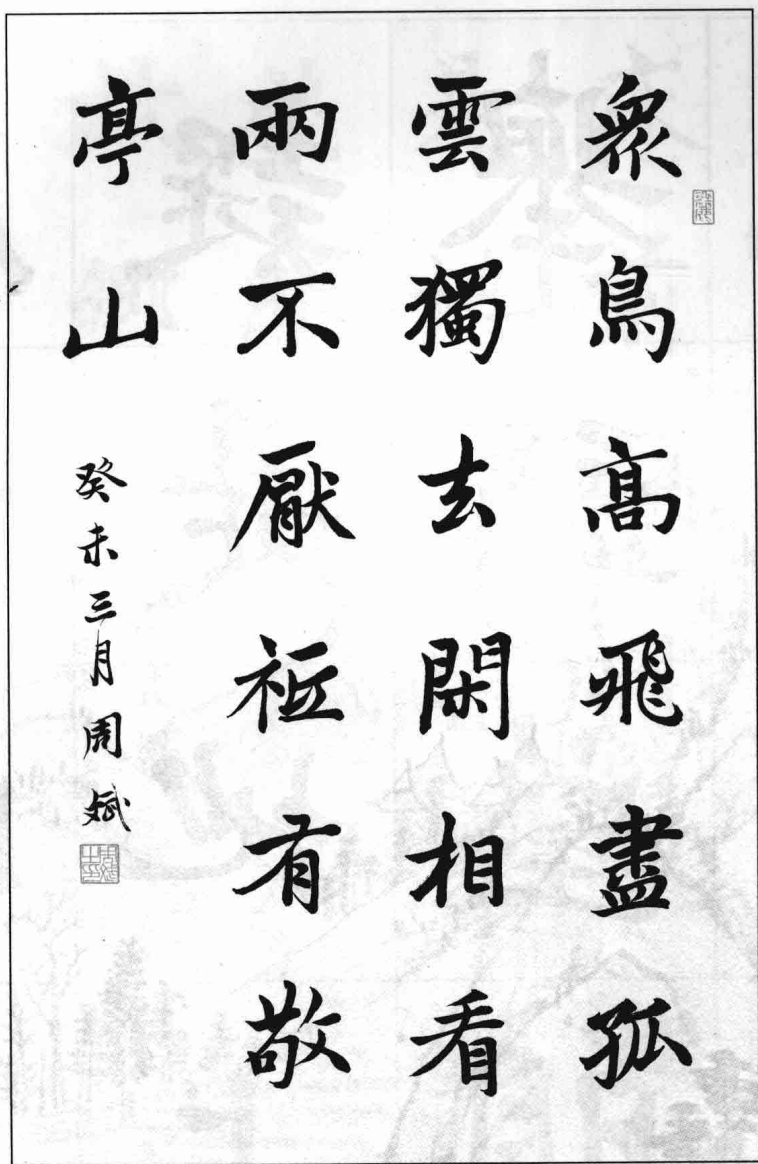 衆鳥高飛盡孤
雲獨去閑相看
兩不厭衹有敬
亭山
癸未三月周斌